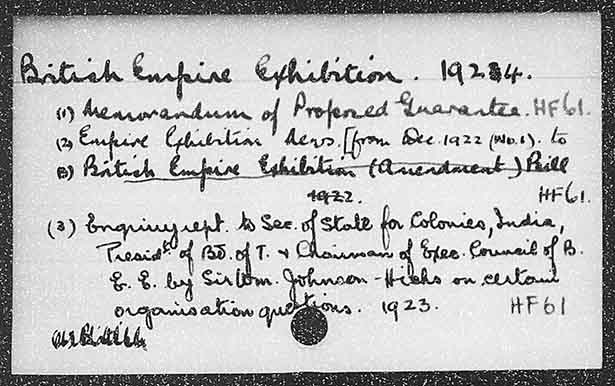 British Empire Exhibition. 1924.
(1) Memorandum of Proposed Guarantee. HF61.
(2) Empire Exhibition News. [from Dec. 1922 (No.1). to
(3) British Empire Exhibition (Amendment) Bill
1922. HF61.
(3) Enquiry rept. to Sec. of State for Colonies, India,
Presidt. of Bd. of T. & Chairman of Exec. Council of B.
E. E. by Sir Wm. Johnson-Hicks on certain
organisation questions. 1923. HF61